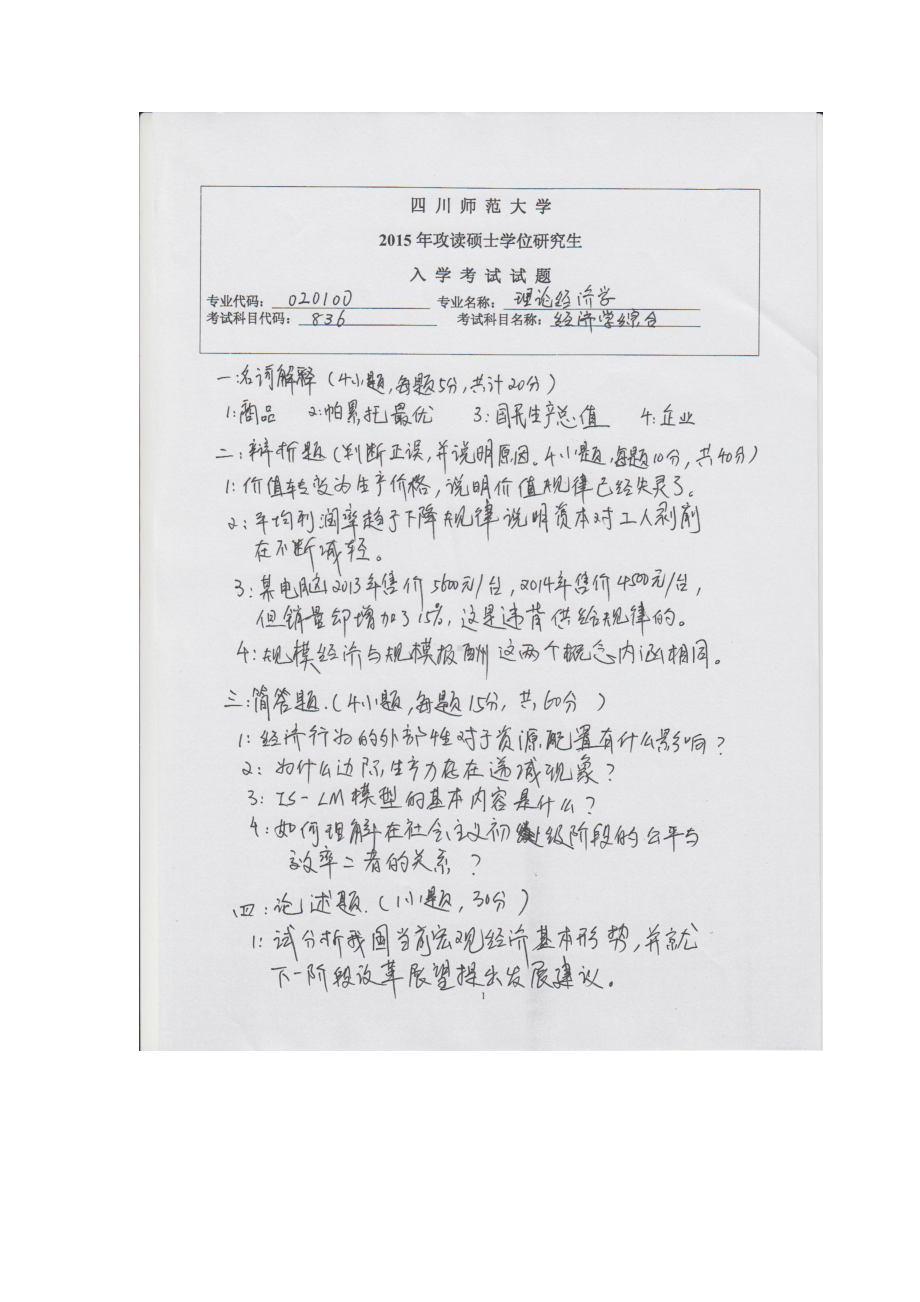 四川师范大学
2015年攻读硕士学位研究生
入学考试试题
专业代码：020100 专业名称：理论经济学
考试科目代码：836 考试科目名称：经济学综合
一：名词解释（4小题，每题5分，共计20分）
1：商品 2：帕累托最优 3：国民生产总值 4：企业
二：辩析题（判断正误，并说明原因。4小题，每题10分，共40分）
1：价值转变为生产价格，说明价值规律已经失灵了。
2：平均利润率趋于下降规律说明资本对工人剥削
在不断减轻。
3：某电脑2013年售价5600元/台，2014年售价4500元/台，
但销量却增加了15%，这是违背供给规律的。
4：规模经济与规模报酬这两个概念内涵相同。
三：简答题．（4小题，每题15分，共60分）
1：经济行为的外部性对于资源配置有什么影响？
2：为什么边际生产力存在递减现象？
3：IS-LM模型的基本内容是什么？
4：如何理解在社会主义初级阶段的公平与
效率二者的关系？
四：论述题．（1小题，30分）
1：试分析我国当前宏观经济基本形势，并就
下一阶段改革展望提出发展建议。
1